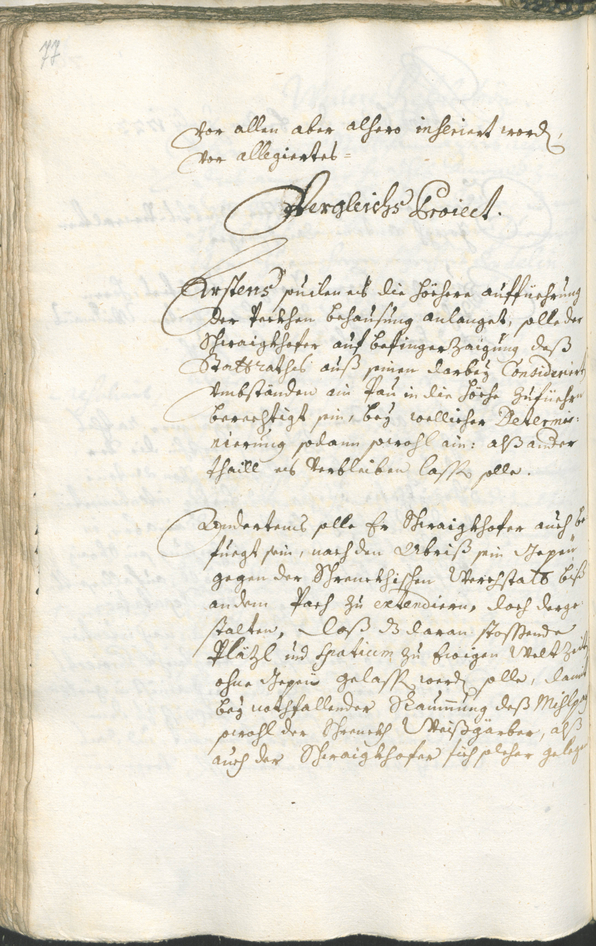 77
vor allen aber alhero inseriert word,
vor allegiertes=
Vergleichs Proiect.
Erstens sovilen es die höchere auffuehrung
der Behausung anlanget, solle der
Schwaigkhofer auf befinger Zaigung deß
Stattrathes auß seinen darbey Considerirt
Umbständen ain Gau in die Höche Zufuehrn
berechtigt sein, bey wellicher Determi:
nierung sodann sowohl ain: alß ander
thaill es Verbleiben lassen solle.
Andertens solle Er Schwaigkhofer auch be
fuegt sein, nach den Abriß sein
gegen der Schrenckhischen Werchstatt biß
an dem Pach Zu extendieren, doch derge
stalten, daß daran stossende
Pläzl und spatium Zu Ewigen Welt Zeiten
ohne gelassen werden solle, damit
bey nothfallender Raummung deß
sowohl der Schrenckh Weißgärber, alß
auch der Schwaigkhofer sich solcher